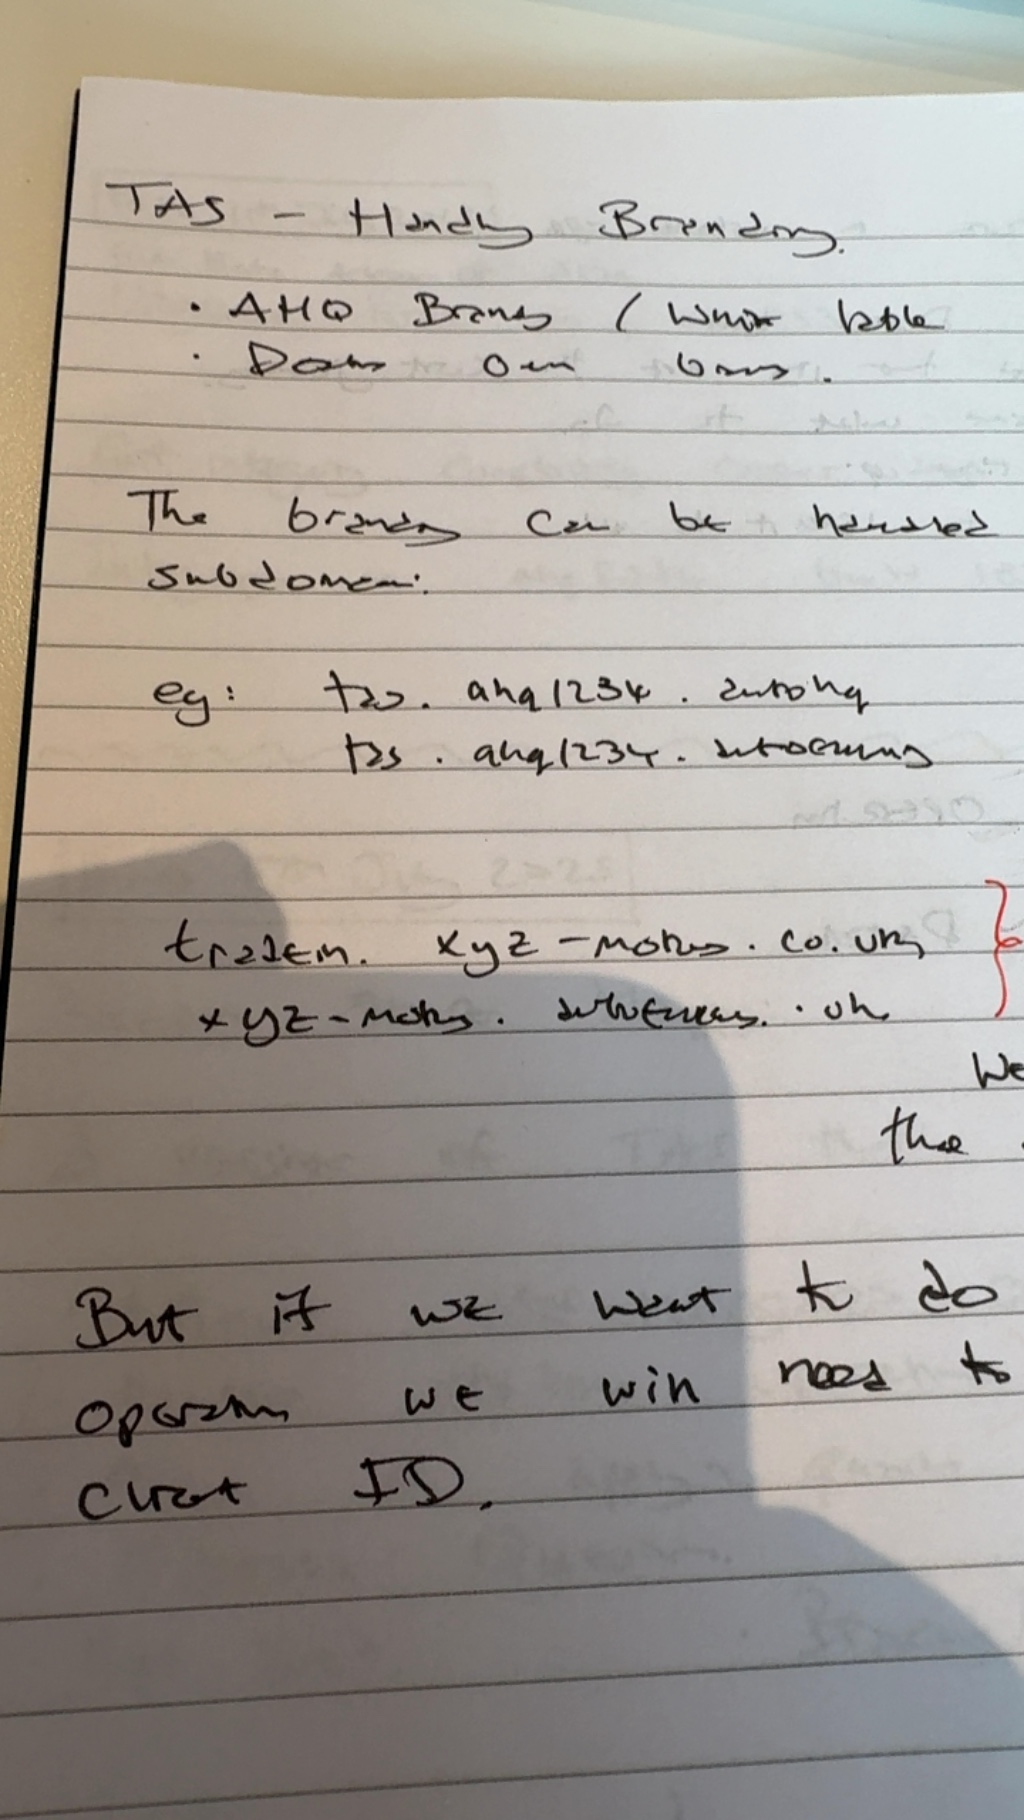 TAS - Handling Branding.
· AHQ Branding / White lable
· Dealers Own brand.
The branding can be handled
subdomain.
eg: tas. ahq1234 . autohq
tas . ahq1234 .
tradein. xyz-motors. co.uk
xyz-motors. . uk
We
the
But if we want to do
operation we will need to
client ID.